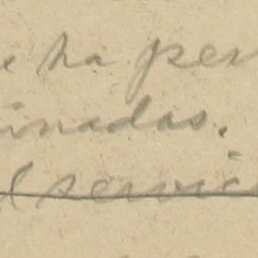 ha per
inadas.
servic